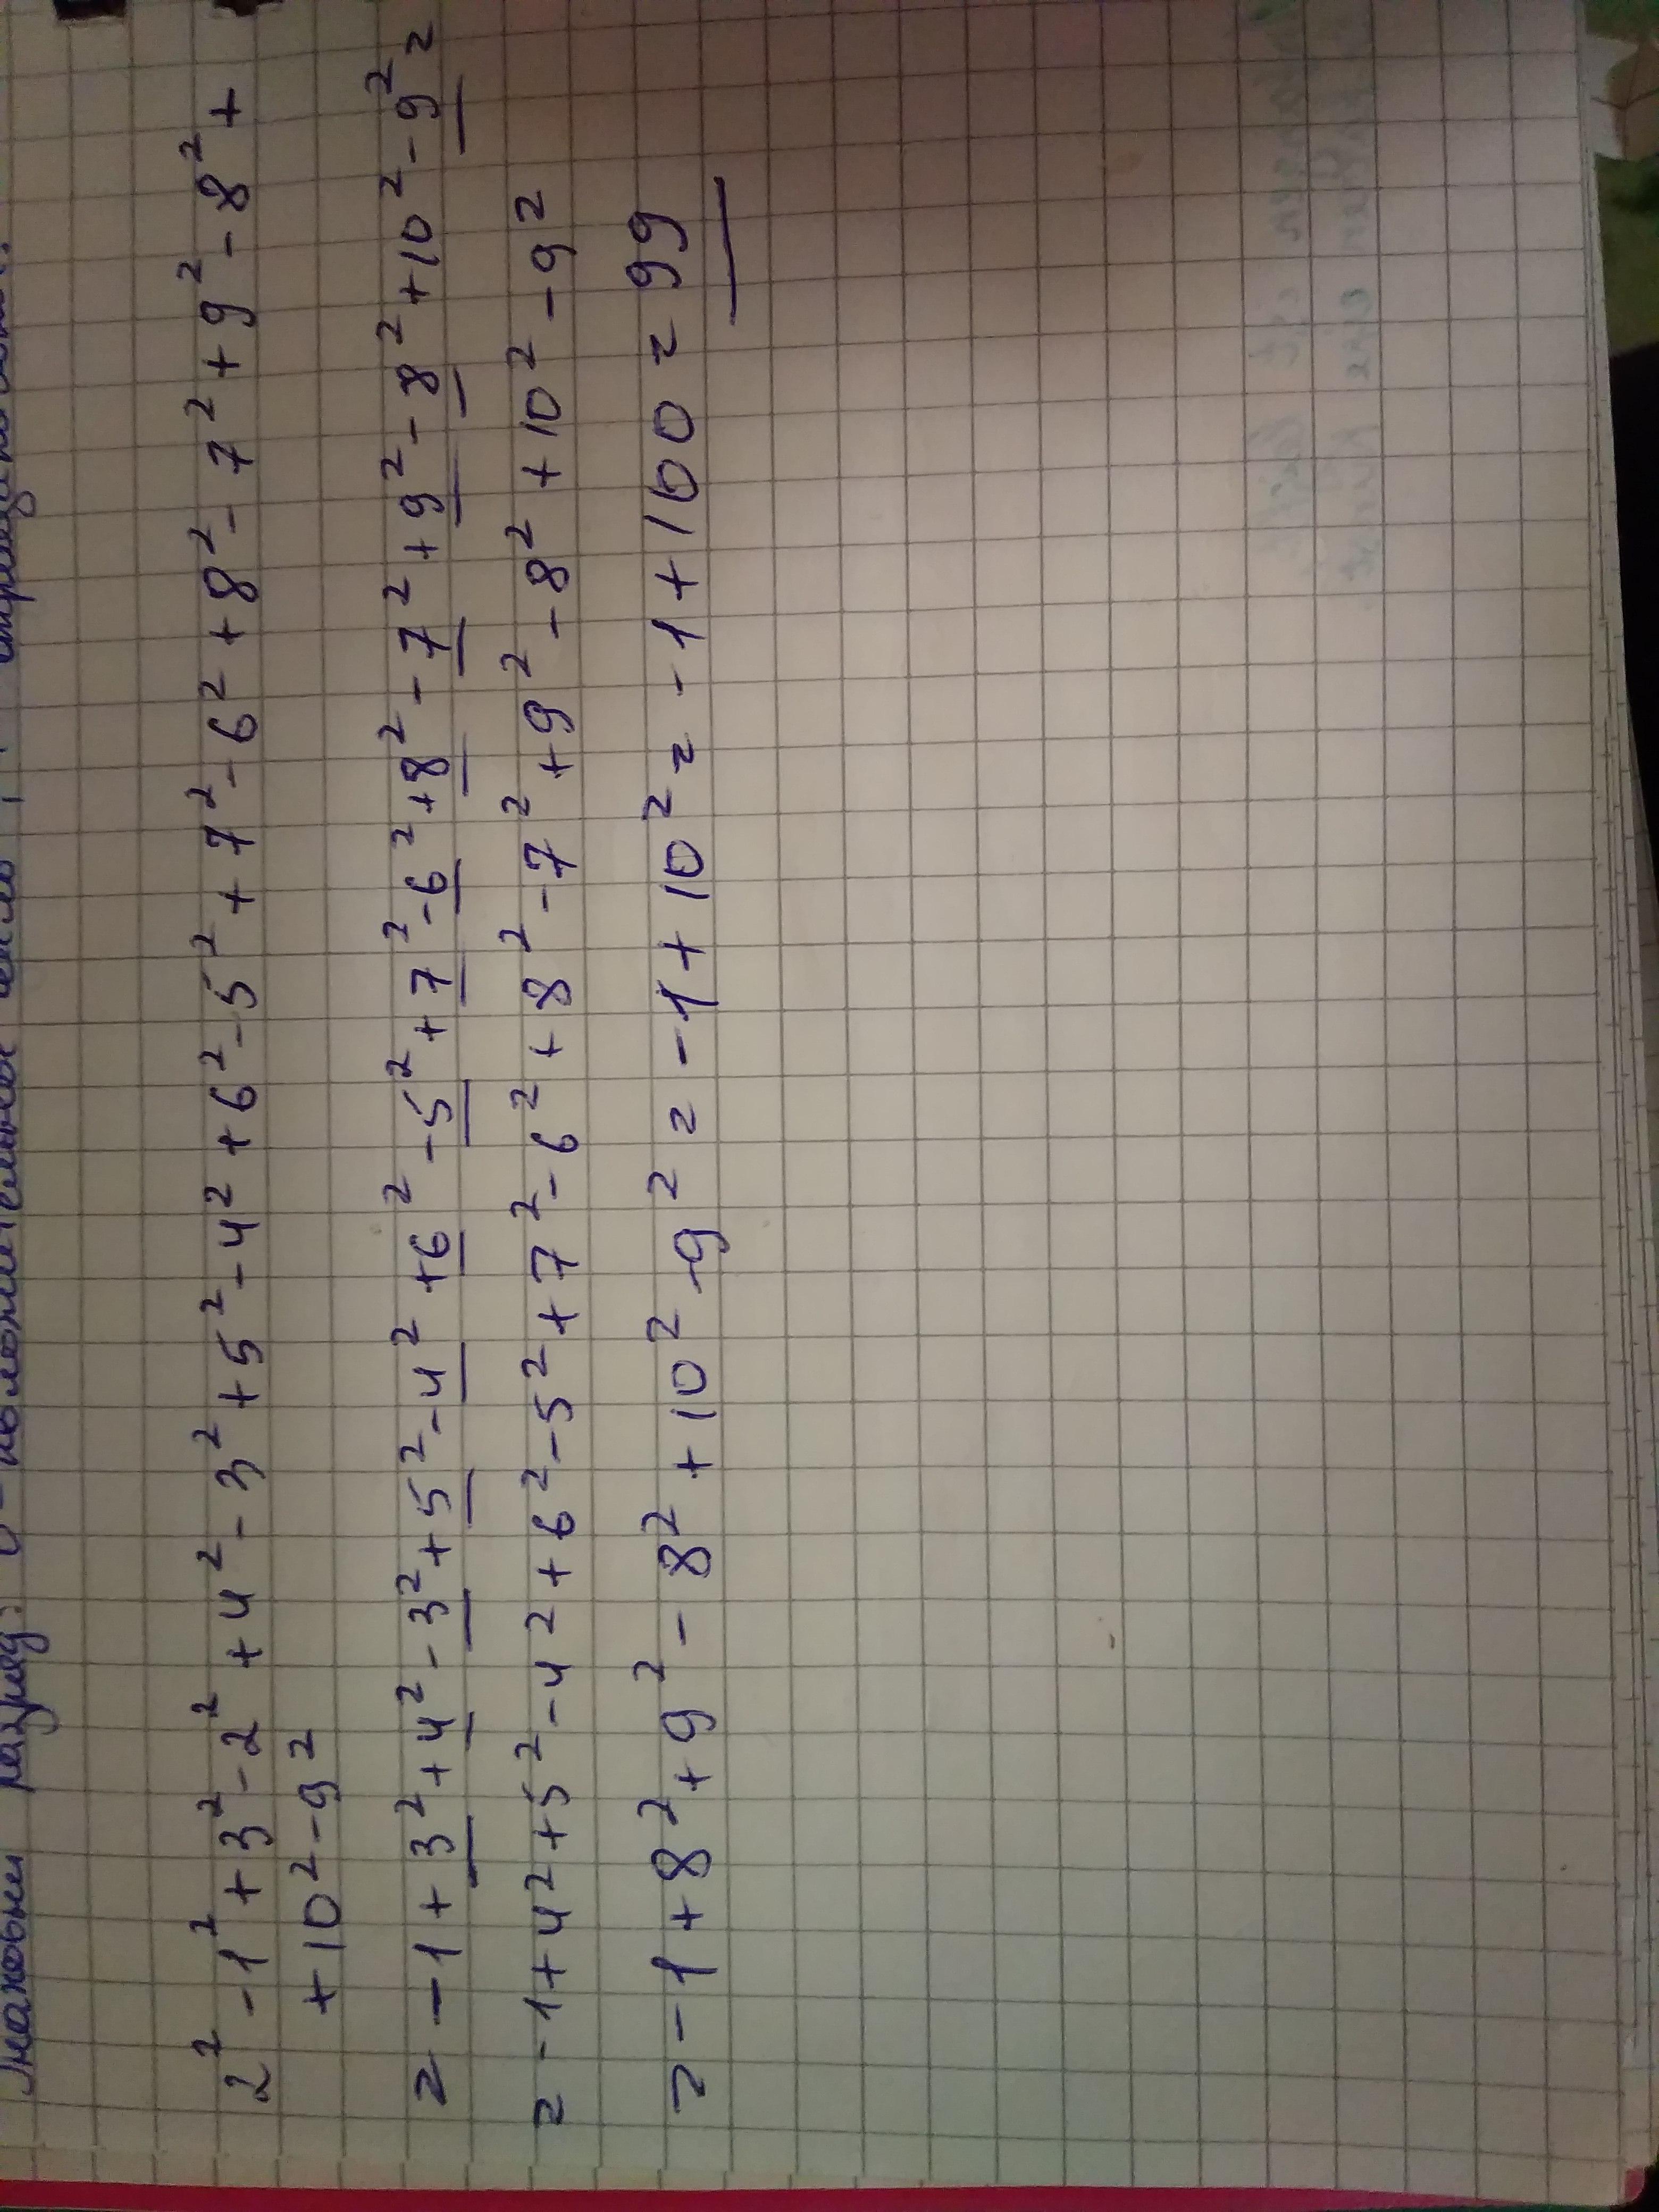 Знаковый разряд: 0 - положительное число, 1 - отрицательное.
2² - 1² + 3² - 2² + 4² - 3² + 5² - 4² + 6² - 5² + 7² - 6² + 8² - 7² + 9² - 8² +
+ 10² - 9²
= - 1 + 3² + 4² - 3² + 5² - 4² + 6² - 5² + 7² - 6² + 8² - 7² + 9² - 8² + 10² - 9² =
= - 1 + 4² + 5² - 4² + 6² - 5² + 7² - 6² + 8² - 7² + 9² - 8² + 10² - 9²
= - 1 + 8² + 9² - 8² + 10² - 9² = - 1 + 10² = - 1 + 100 = 99